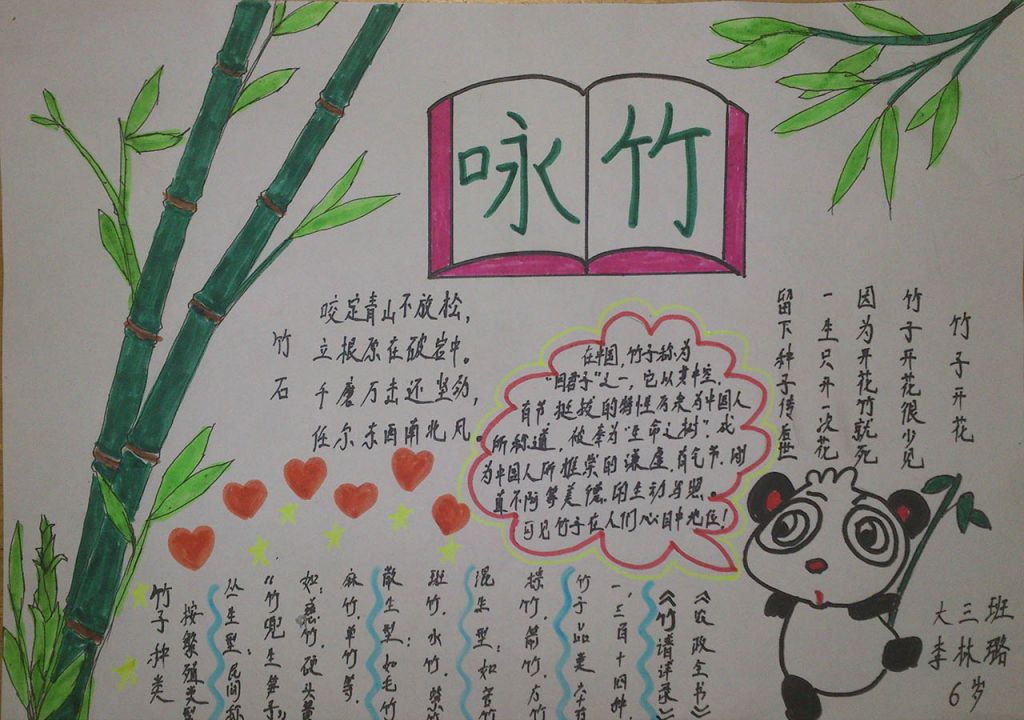 咏竹
竹石
咬定青山不放松，
立根原在破岩中。
千磨万击还坚劲，
任尔东西南北风。
在中国，竹子称为
“四君子”之一，它以其中空，
有节挺拔的特性历来为中国人
所称道，被奉为“生命之树”，成
为中国人所推崇的谦虚，有气节，刚
直不阿等美德的生动写照。
可见竹子在人们心目中地位！
竹子开花
竹子开花很少见
因为开花竹就死
一生只开一次花
留下种子传后世
大三班
李林璐
6岁
竹子种类
按繁殖类型
丛生型：民间称
“竹兜生笋子”
如：慈竹，硬头黄
麻竹，单竹等。
散生型：如毛竹
斑竹，水竹，紫竹
混生型：如苦竹
棕竹，箭竹，方竹
竹子品类
《竹谱详录》
《农政全书》